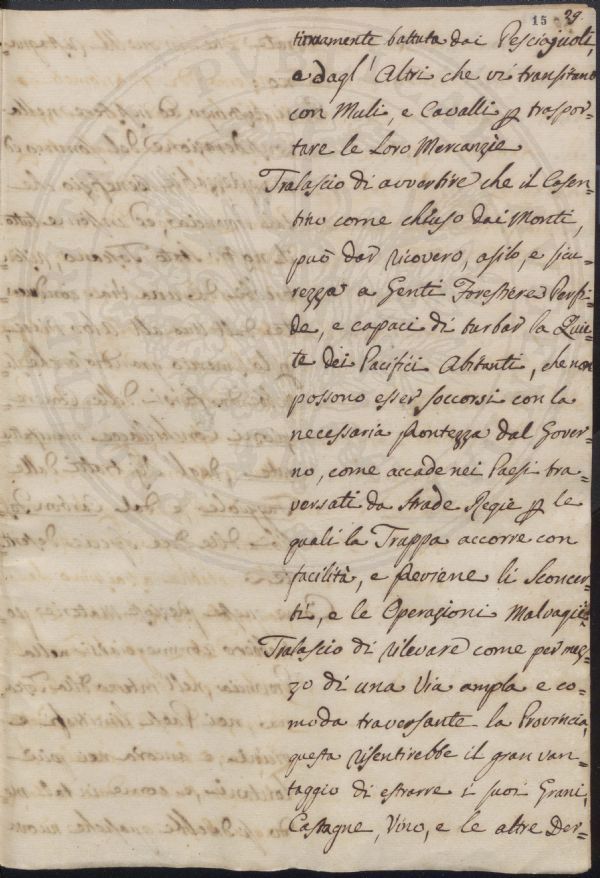 15 29.
tinuamente battuta dai Pesciajuoli,
e dagl' Altri che vi transitano
con Muli, e Cavalli p traspor=
tare le Loro Mercanzie
Tralascio di avvertire che il Casen=
tino come chiuso dai Monti,
può dar ricovero, asilo, e sicu=
rezza a Genti Forestiere Perfi=
de, e capaci di turbar la Quie=
te dei Pacifici Abitanti, che non
possono esser soccorsi con la
necessaria prontezza dal Gover=
no, come accade nei Paesi tra=
versati da Strade Regie p le
quali la Trappa accorre con
facilità, e previene li Sconcer=
ti, e le Operazioni Malvagie=
Tralascio di rilevare come per mez=
zo di una Via ampla e co=
moda traversante la Provincia,
questa risentirebbe il gran van=
taggio di estrarre i suoi Grani,
Castagne, Vino, e le altre Der=